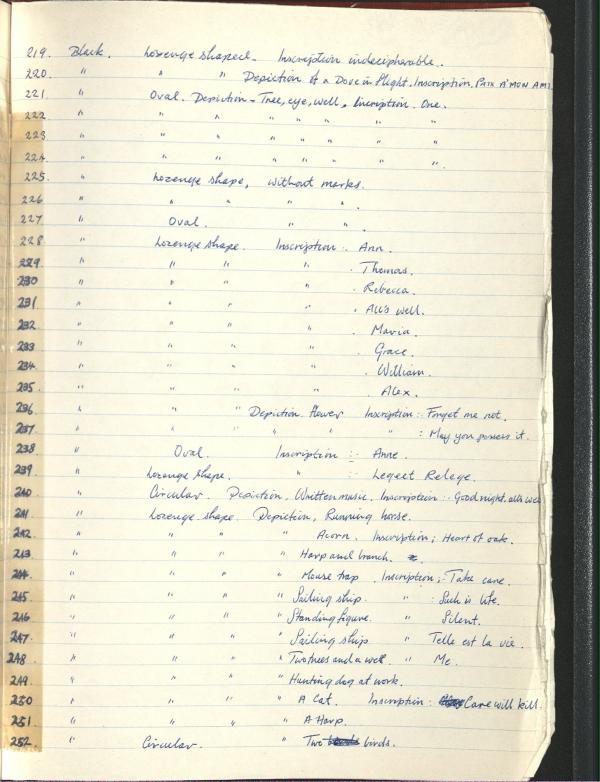 219. Black. Lozenge shaped - Inscription indecipherable.
220. " " " Depiction of a Dove in flight. Inscription, PRIX A'MON AMI
221. " Oval. Depiction - Tree, eye, well, Inscription. One.
222 " " " " " " "
223 " " " " " " "
224. " " " " " " ".
225. " Lozenge shape, without marks.
226 " " " " " .
227 " Oval. " "
228 " Lozenge shape. Inscription :. Ann.
229 " " " " . Thomas.
230 " " " " . Rebecca.
231 " " " " . All's well.
232 " " " " . Maria.
233 " " " " . Grace.
234 " " " " . William.
235 " " " " . Alex.
236 " " " Depiction. Flower Inscription :. Forget me not.
237 " " " " " " : May you possess it.
238 " Oval. Inscription :- Anne.
239 " Lozenge shape. " :- Legect Relege.
240 " Circular. Depiction, Written music. Inscription :. Good night, alls well
241 " Lozenge shape. Depiction, Running horse.
242 " " " " Acorn. Inscription; Heart of oak.
243 " " " " Harp and branch.
244. " " " " Mouse trap. Inscription;: Take care.
245 " " " " Sailing ship. " : Such is life.
246 " " " " Standing figure. " Silent.
247. " " " " Sailing ship " Telle est la vie.
248 " " " " Two trees and a well. " Me.
249. " " " " Hunting dog at work.
250 " " " " A Cat. Inscription : Care will kill.
251 " " " " A Harp.
252. " Circular. " Two birds.